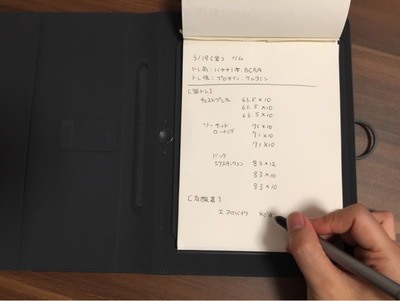 5/18(金) ジム
トレ前:バナナ1本、BCAA
トレ後:プロテイン、グルタミン
[筋トレ]
チェストプレス 63.5×10
63.5×10
63.5×10
シーテッド 71×10
ローイング 71×10
71×10
バック
エクステンション 83×12
83×10
83×10
[有酸素]
エアロバイク